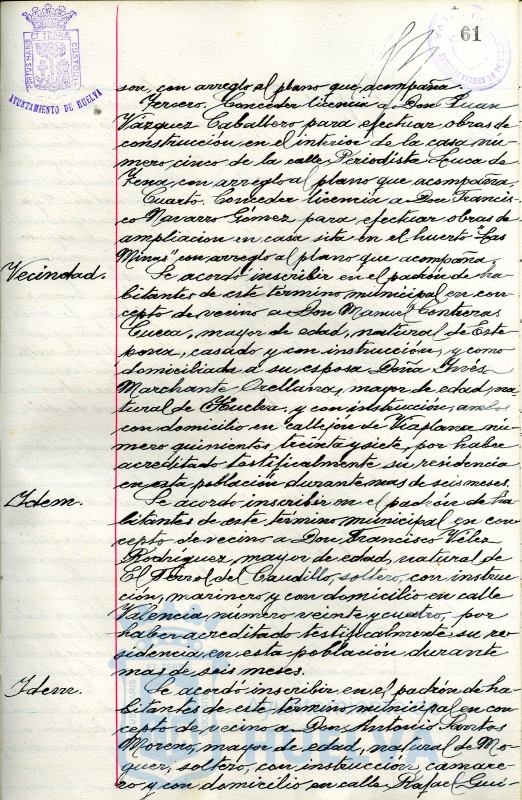 PORTUS MARIS ET TERRÆ CUSTODIA
AYUNTAMIENTO DE HUELVA
61
son, con arreglo al plano que acompaña.
Tercero. Conceder licencia a Don Juan
Vázquez Caballero para efectuar obras de
construcción en el interior de la casa nu-
mero cinco de la calle Periodista Luca de
Tena, con arreglo al plano que acompaña.
Cuarto. Conceder licencia a Don Francis-
co Navarro Gómez para efectuar obras de
ampliacion en casa sita en el huerto "Las
Minas" con arreglo al plano que acompaña.
Vecindad.
Se acordo inscribir en el padrón de ha-
bitantes de este termino municipal en con-
cepto de vecino a Don Manuel Contreras
Cueca, mayor de edad, natural de Este
pona, casado y con instrucción, y como
domiciliada a su esposa Doña Inés
Marchante Orellana, mayor de edad, na-
tural de Huelva, y con instrucción, ambos
con domicilio en callejón de Viaplana nú-
mero quinientos treinta y siete, por haber
acreditado testificalmente su residencia
en esta población durante mas de seis meses.
Idem.
Se acordo inscribir en el padrón de ha-
bitantes de este término municipal en con-
cepto de vecino a Don Francisco Vélez
Rodríguez, mayor de edad, natural de
El Ferrol del Caudillo, soltero, con instruc-
ción, marinero y con domicilio en calle
Valencia, número veinte y cuatro, por
haber acreditado testificalmente su re-
sidencia en esta población durante
mas de seis meses.
Idem.
Se acordo inscribir en el padrón de ha-
bitantes de este término municipal en con-
cepto de vecino a Don Antonio Santos
Moreno, mayor de edad, natural de Mo-
guer, soltero, con instrucción, camare-
ro y con domicilio en calle Rafael Gui-